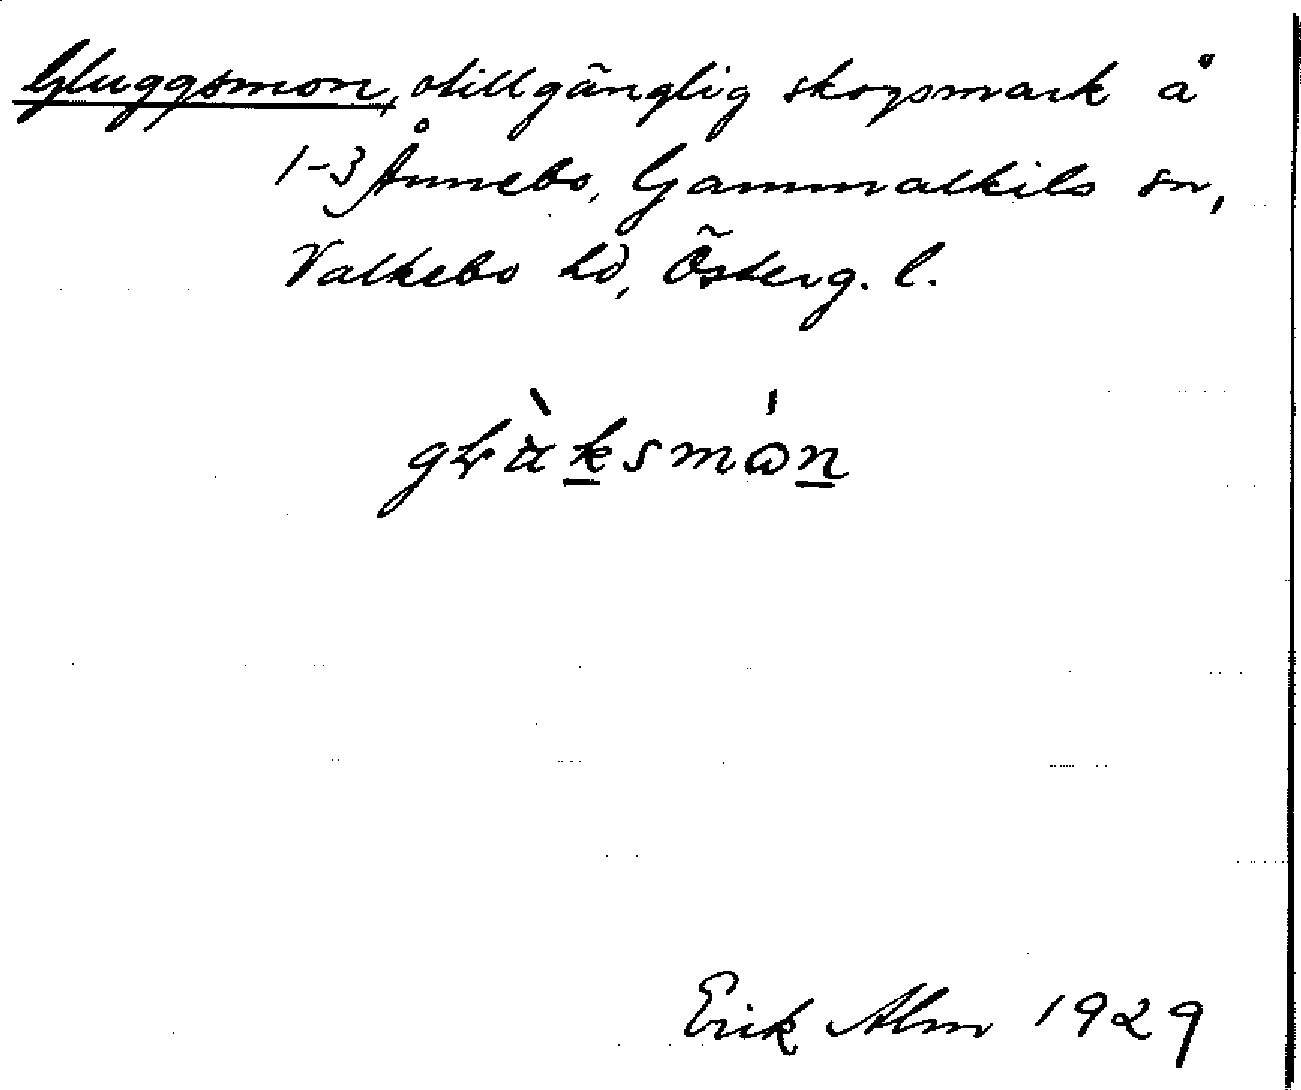 Gluggsmon, otillgänglig skogsmark å
1-3 Ånnebo, Gammalkils sn,
Valkebo hd, Österg. l.
Erik Alm 1929